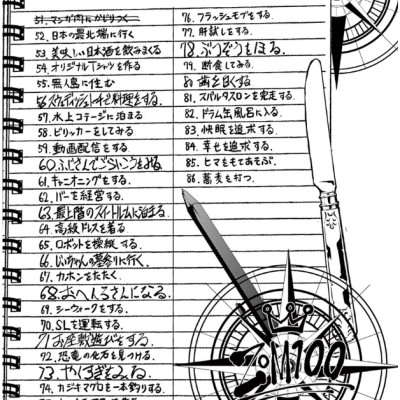 51. マンガ肉にかじりつく
52. 日本の最北端に行く
53. 美味しい日本酒を飲みまくる
54. オリジナルTシャツを作る
55. 無人島に住む
56. スカイダイビング
料理をする。
57. 水上コテージに泊まる
58. ピッカーをしてみる
59. 動画配信をする。
60. ふじさんでごらいこうをみる
61. キャニオニングをする。
62. バーを経営する。
63. 最上階のスイートルームに泊まる
64. 高級ドレスを着る
65. ロボットを操縦する。
66. じいちゃんの墓参りに行く。
67. カホンをたたく。
68. おへんろさんになる。
69. シーウォークをする。
70. SLを運転する。
71. お座敷遊びをする
72. 恐竜の化石を見つける。
73. やしすぎをみる。
74. カジキマグロを一本釣りする。
76. フラッシュモブをする。
77. 肝試しをする。
78. ぶつぞうをほる。
79. 断食してみる。
80. 歯を白くする
81. スパルタスロンを完走する。
82. ドラム缶風呂に入る。
83. 快眠を追求する。
84. 幸せを追求する。
85. ヒマをもてあそぶ。
86. 蕎麦を打つ。
ゾM100